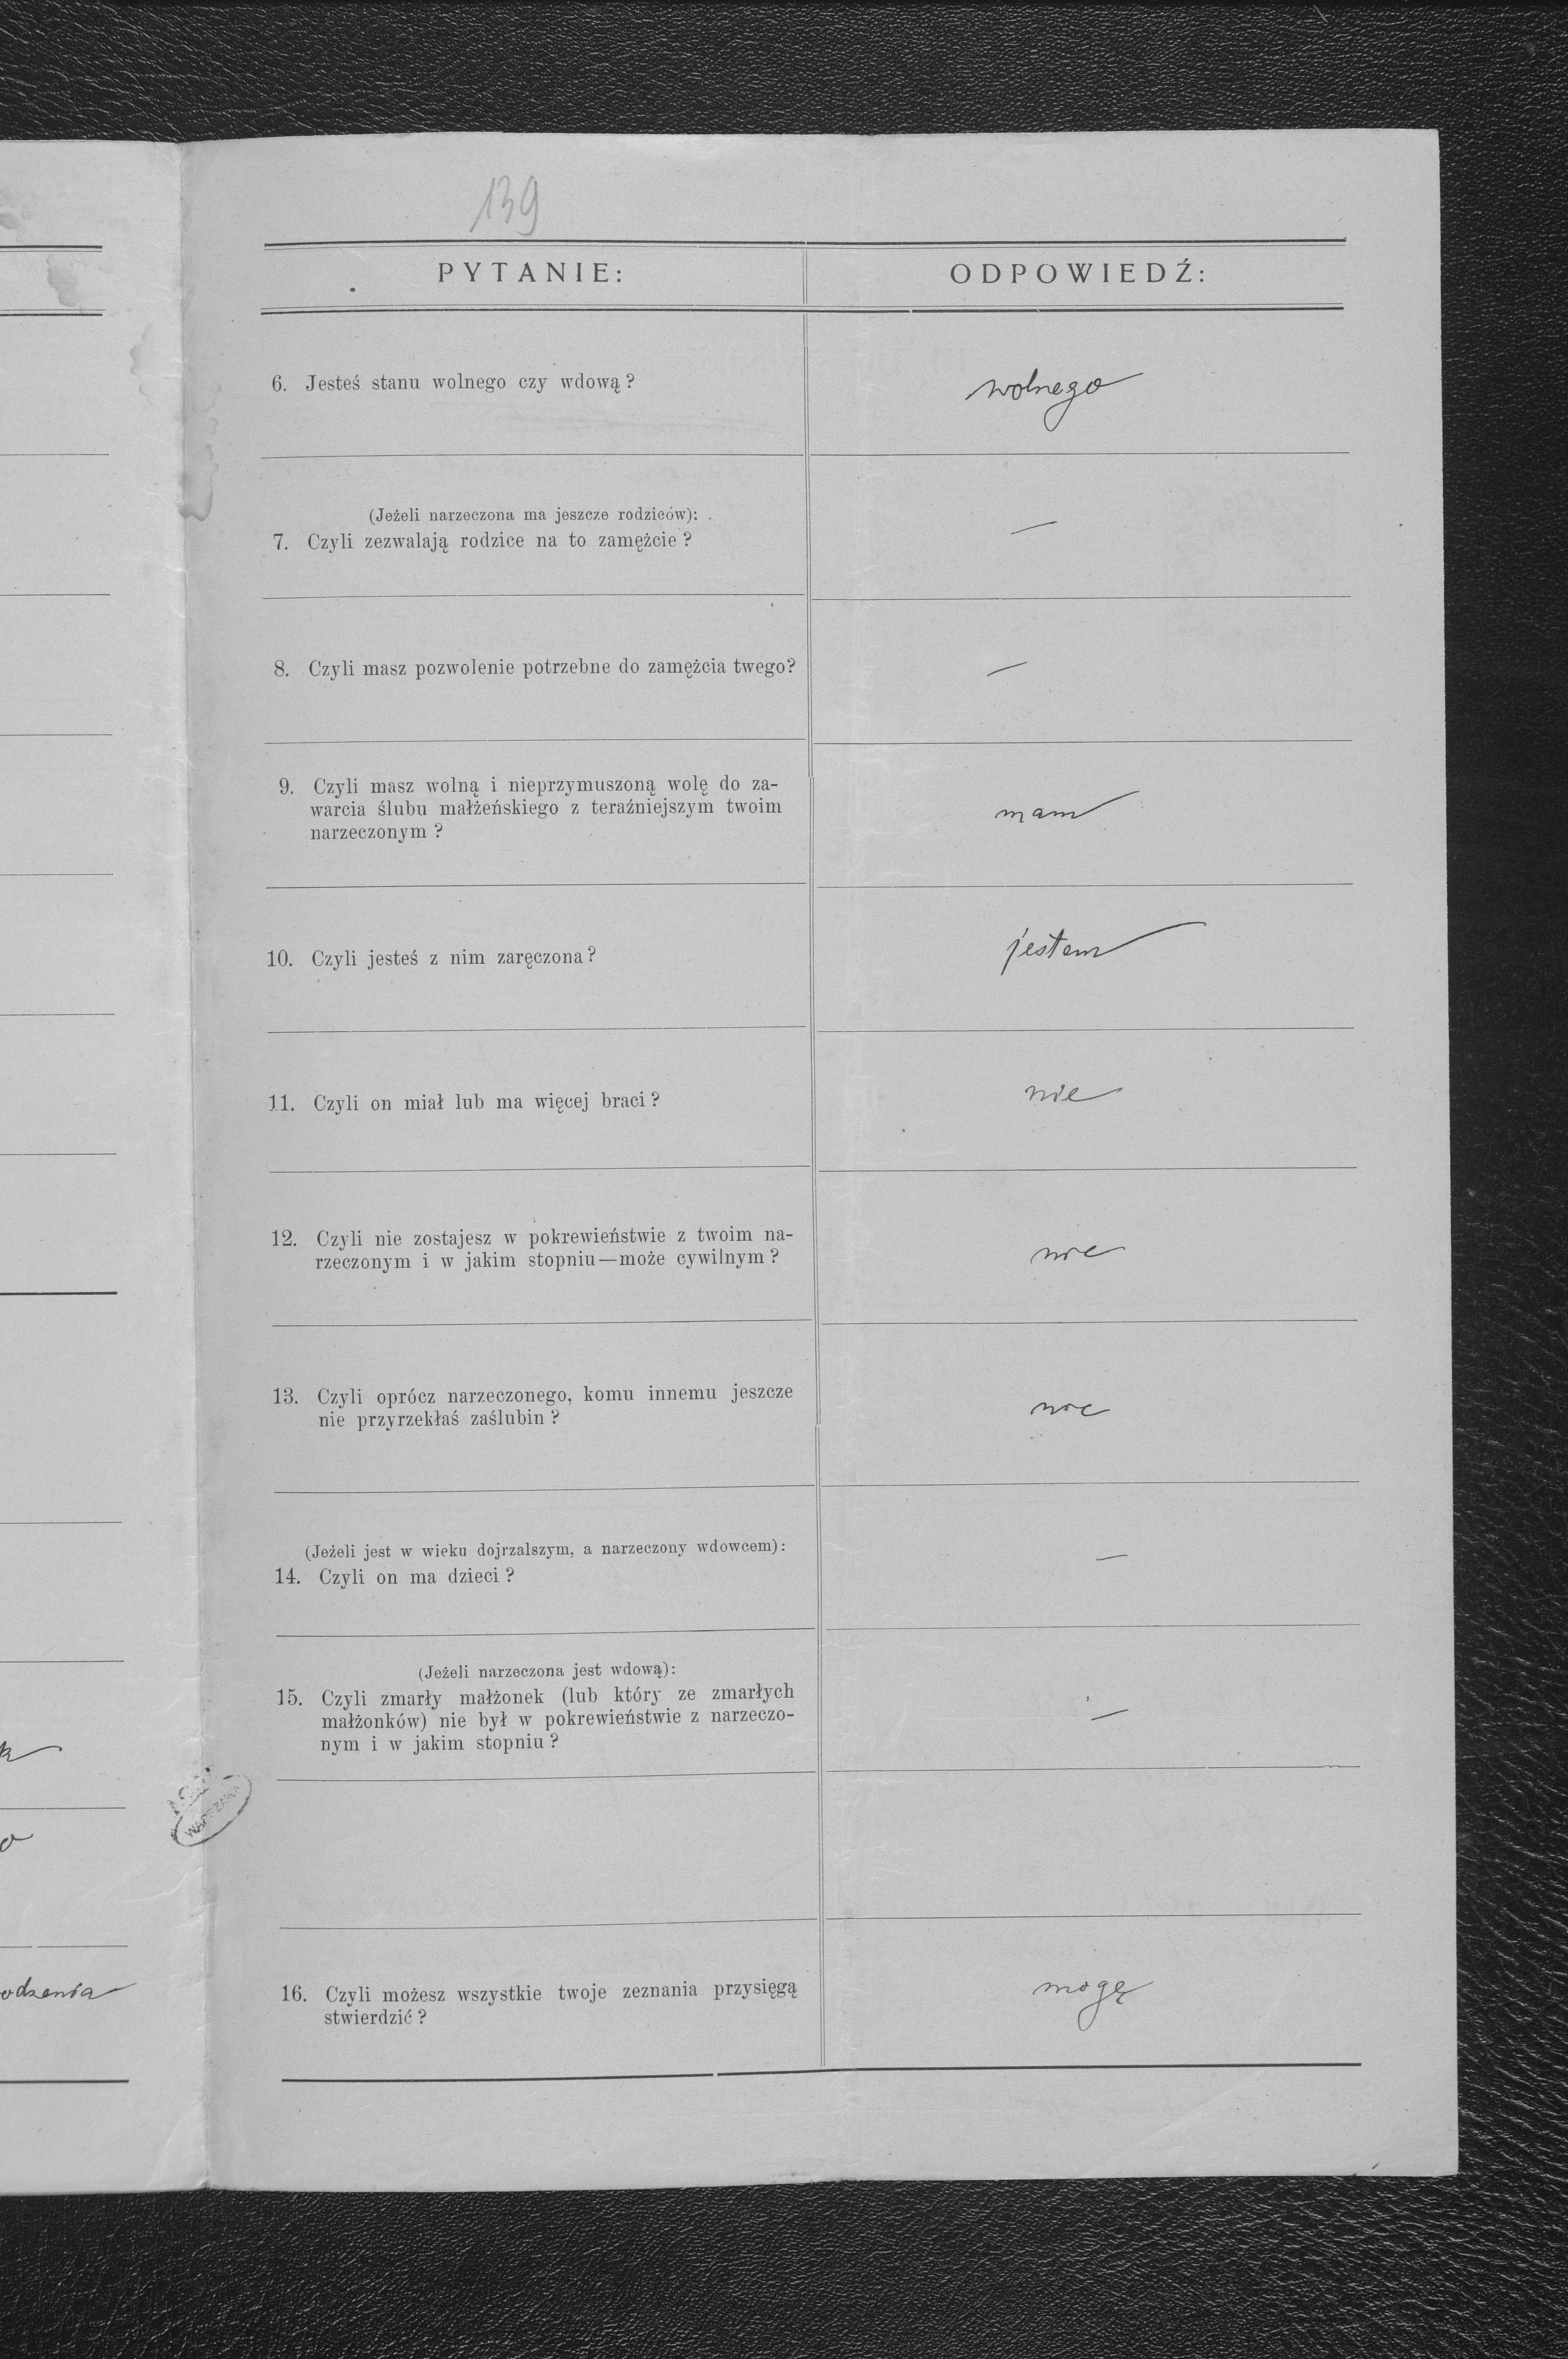 139
PYTANIE: ODPOWIEDŹ:
6. Jesteś stanu wolnego czy wdową? wolnego
(Jeżeli narzeczona ma jeszcze rodziców):
7. Czyli zezwalają rodzice na to zamężcie? —
8. Czyli masz pozwolenie potrzebne do zamężcia twego? —
9. Czyli masz wolną i nieprzymuszoną wolę do za-
warcia ślubu małżeńskiego z teraźniejszym twoim
narzeczonym? mam
10. Czyli jesteś z nim zaręczona? jestem
11. Czyli on miał lub ma więcej braci? nie
12. Czyli nie zostajesz w pokrewieństwie z twoim na-
rzeczonym i w jakim stopniu—może cywilnym? nie
13. Czyli oprócz narzeczonego, komu innemu jeszcze
nie przyrzekłaś zaślubin? nie
(Jeżeli jest w wieku dojrzalszym, a narzeczony wdowcem):
14. Czyli on ma dzieci? —
(Jeżeli narzeczona jest wdową):
15. Czyli zmarły małżonek (lub który ze zmarłych
małżonków) nie był w pokrewieństwie z narzeczo-
nym i w jakim stopniu? —
WARSZAWA
16. Czyli możesz wszystkie twoje zeznania przysięgą
stwierdzić? mogę